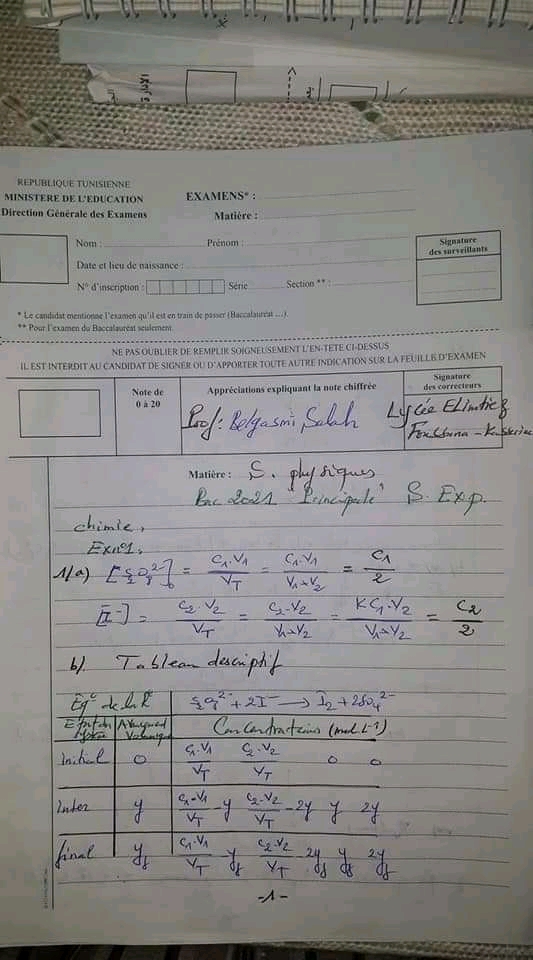 REPUBLIQUE TUNISIENNE
MINISTERE DE L'EDUCATION
Direction Générale des Examens
EXAMENS* :
Matière :
Nom : Prénom :
Date et lieu de naissance :
N° d'inscription : Série Section ** :
Signature
des surveillants
* Le candidat mentionne l'examen qu'il est en train de passer (Baccalauréat ....).
** Pour l'examen du Baccalauréat seulement.
NE PAS OUBLIER DE REMPLIR SOIGNEUSEMENT L'EN-TETE CI-DESSUS
IL EST INTERDIT AU CANDIDAT DE SIGNER OU D'APPORTER TOUTE AUTRE INDICATION SUR LA FEUILLE D'EXAMEN
Note de
0 à 20
Appréciations expliquant la note chiffrée
Signature
des correcteurs
Prof: Belgasmi Salah
Lycée
Matière : S. physiques
Bac 2021 "Principale" S. Exp.
chimie.
Ex n°1.
1/a) [S2O8 2-]0 = C1.V1/VT = C1.V1/V1+V2 = C1/2
[I-] = C2.V2/VT = C2.V2/V1+V2 = KC1.V2/V1+V2 = C2/2
b) Tableau descriptif
Eqº de la R S2O8 2- + 2I- → I2 + 2SO4 2-
Etat du système Avancement Volumique Concentrations (mol.L-1)
initial 0 C1.V1/VT C2.V2/VT 0 0
inter y C1.V1/VT - y C2.V2/VT - 2y y 2y
final yf C1.V1/VT - yf C2.V2/VT - 2yf yf 2yf
-1-